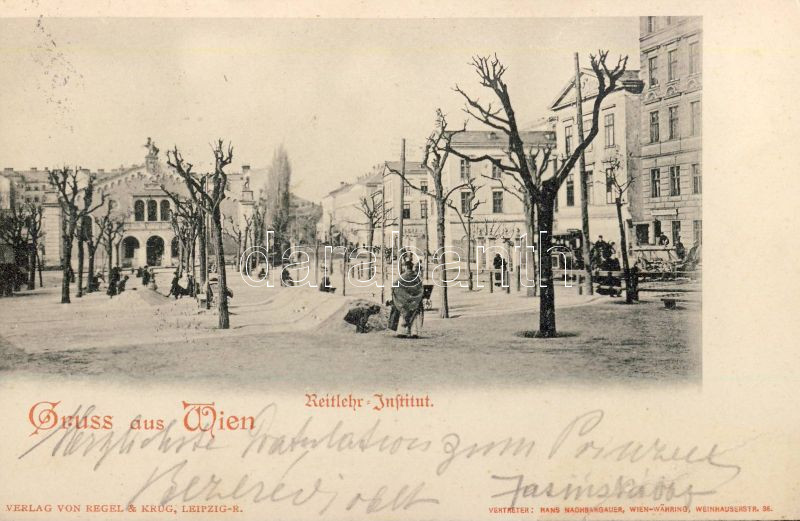 darabanth
Reitlehr-Institut.
Gruss aus Wien
Herzlichste Gratulation zum Prinzen
VERLAG VON REGEL & KRUG, LEIPZIG-R.
VERTRETER: HANS NACHBARGAUER, WIEN-WÄHRING, WEINHAUSERSTR. 36.